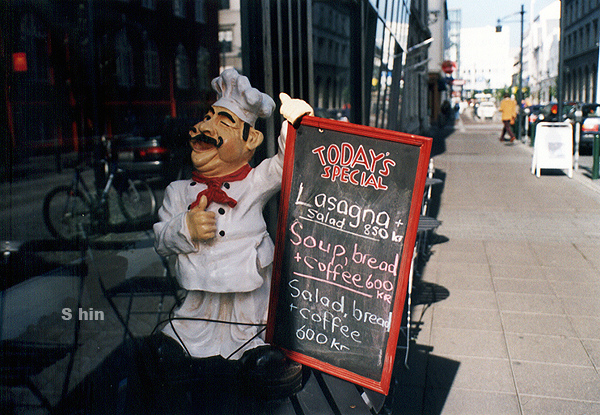 TODAY'S
SPECIAL
Lasagna +
salad 850 kr
Soup, bread
+ coffee 600
KR
Salad, bread
+ coffee
600 kr
S hin